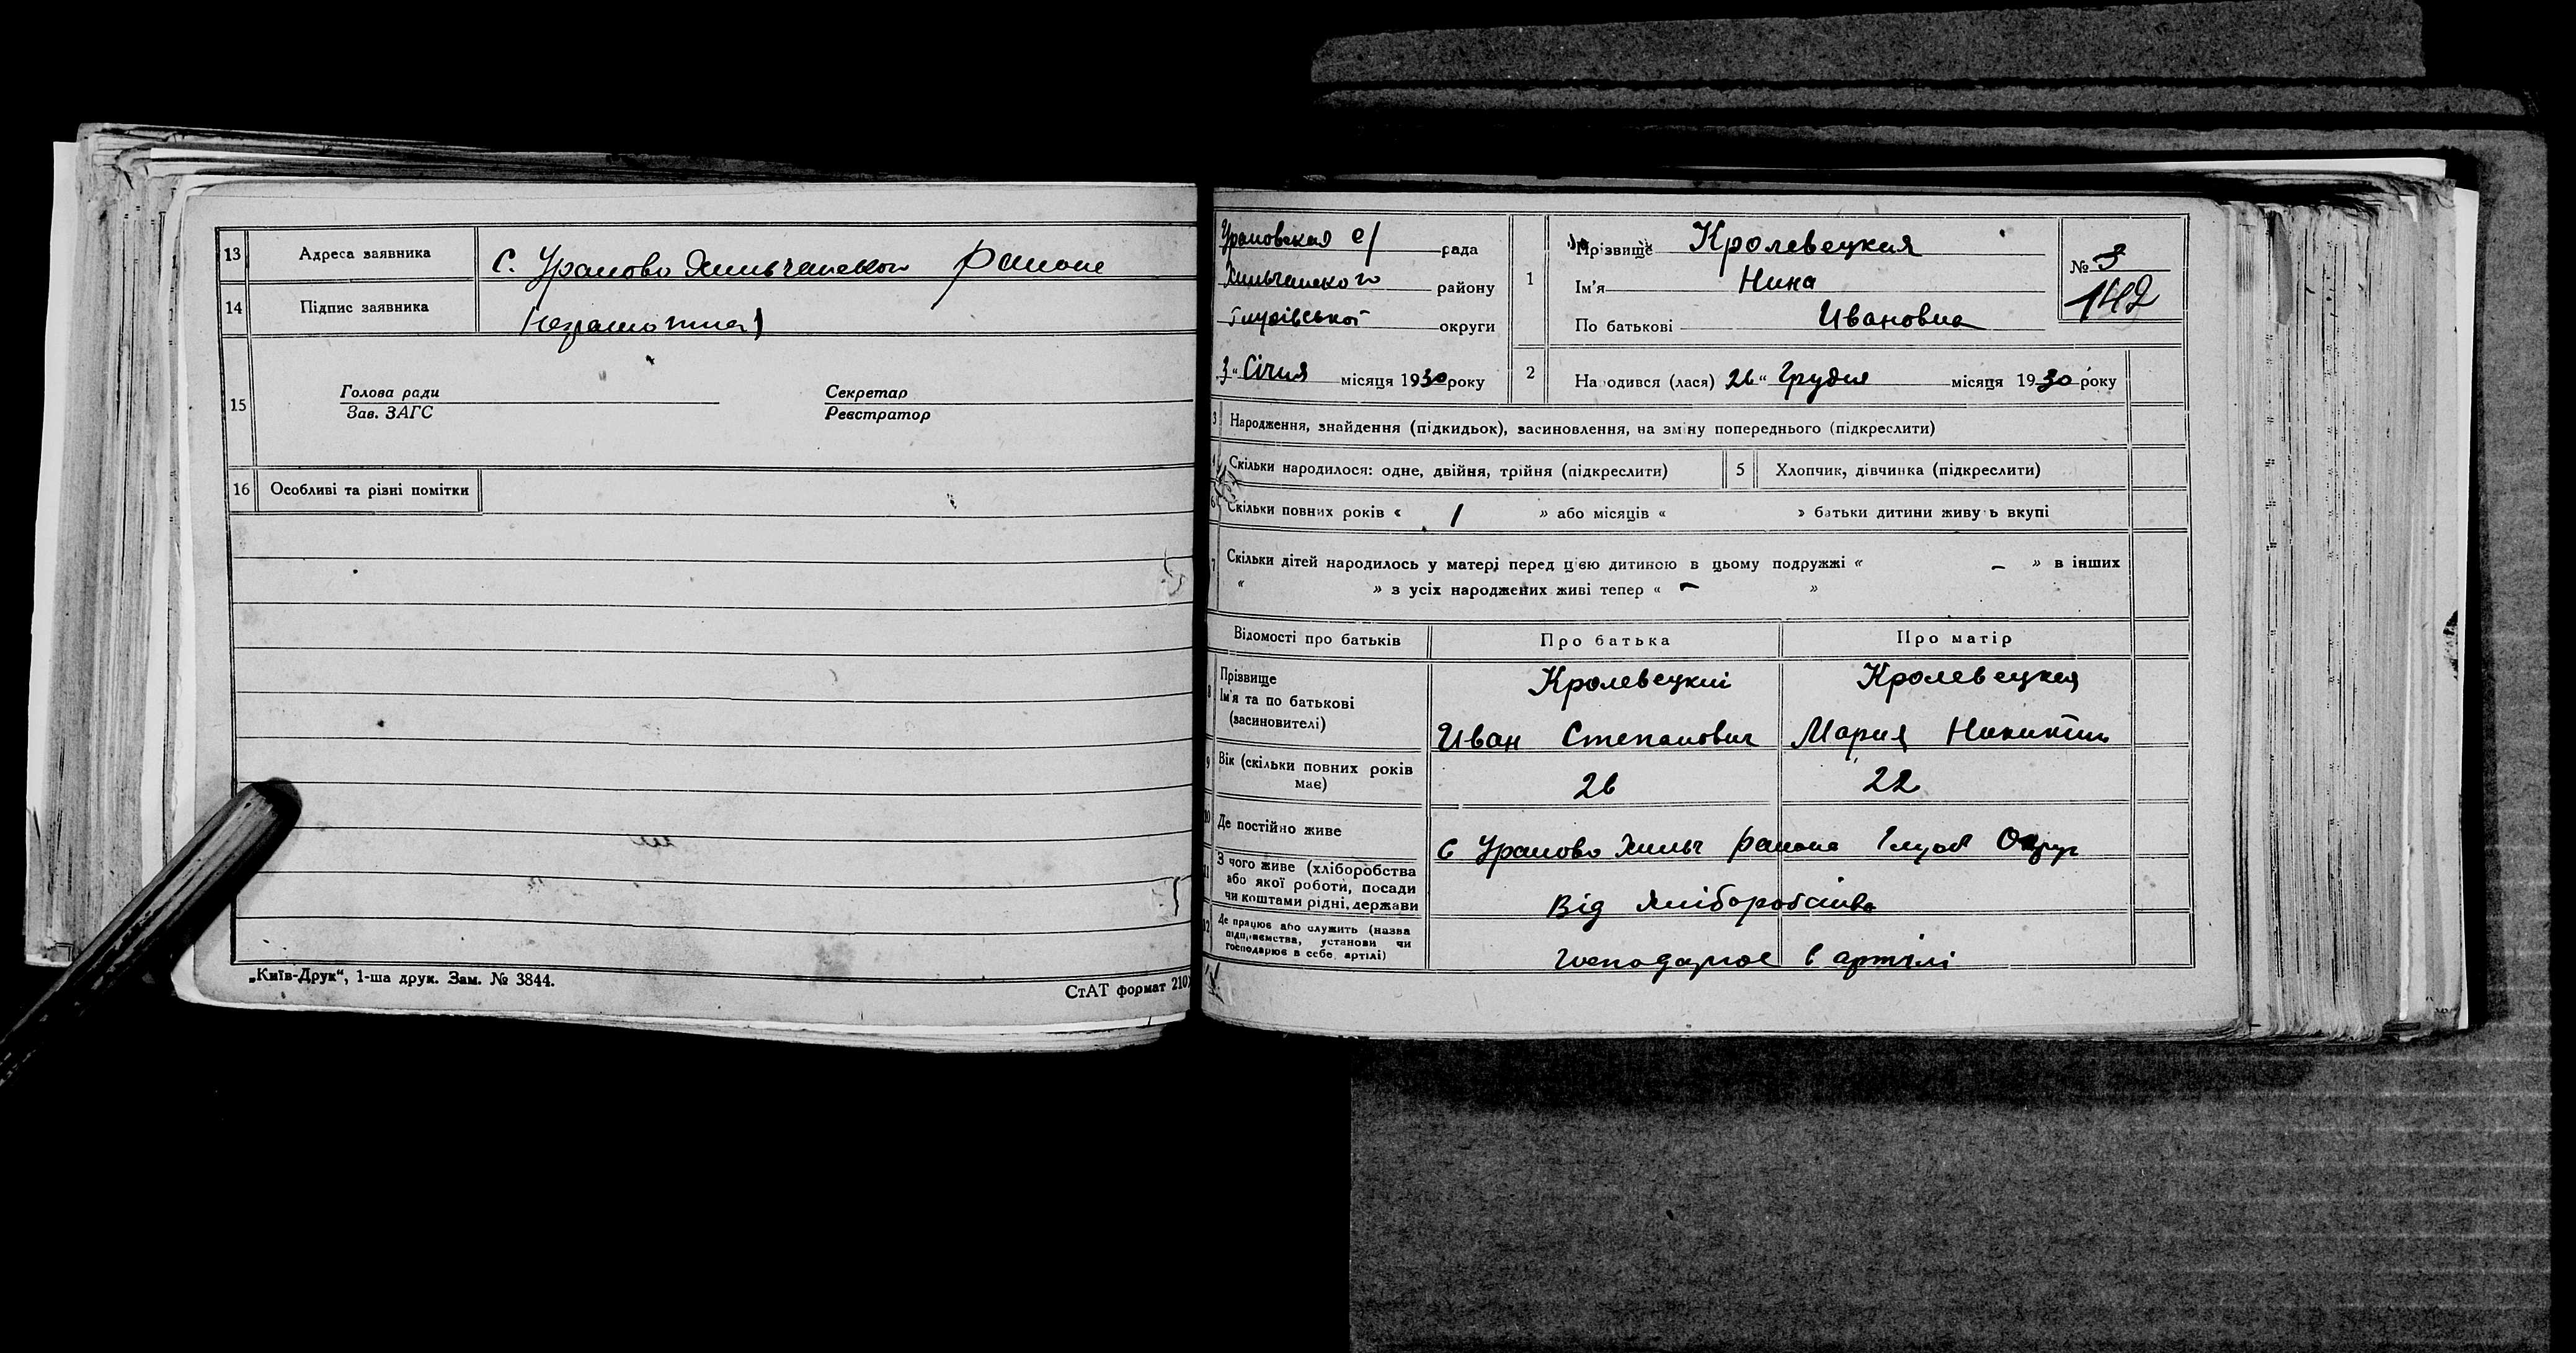 13 Адреса заявника С. Ураново Хильчанского Района
14 Підпис заявника (неграмотна)
15 Голова ради
Зав. ЗАГС
Секретар
Реєстратор
16 Особливі та різні помітки
„Київ-Друк“, 1-ша друк. Зам. № 3844.
СтАТ формат 210
Урановская с/ рада
Хильчанского району
Глухівської округи
3 „ Січня місяця 1930 року
1 Прізвище Кролевецкая
Ім'я Нина
По батькові Ивановна
№ 3
142
2 Народився (лася) 26 „ Грудня місяця 1930 року
3 Народження, знайдення (підкидьок), засиновлення, на зміну попереднього (підкреслити)
4 Скільки народилося: одне, двійня, трійня (підкреслити) 5 Хлопчик, дівчинка (підкреслити)
6 Скільки повних років « 1 » або місяців « » батьки дитини живуть вкупі
7 Скільки дітей народилось у матері перед цією дитиною в цьому подружжі « – » в інших
« » з усіх народжених живі тепер « – »
Відомості про батьків Про батька Про матір
8 Прізвище Кролевецкий Кролевецкая
Ім'я та по батькові
(засиновителі) Иван Степанович Мария Никитич
9 Вік (скільки повних років має) 26 22
10 Де постійно живе С Ураново Хильч района Глухів Округ
11 З чого живе (хліборобства
або якої роботи, посади
чи коштами рідні, держави Від хліборобства
12 Де працює або служить (назва
підприємства, установи чи
господарює в себе, артілі) Господарює в артілі